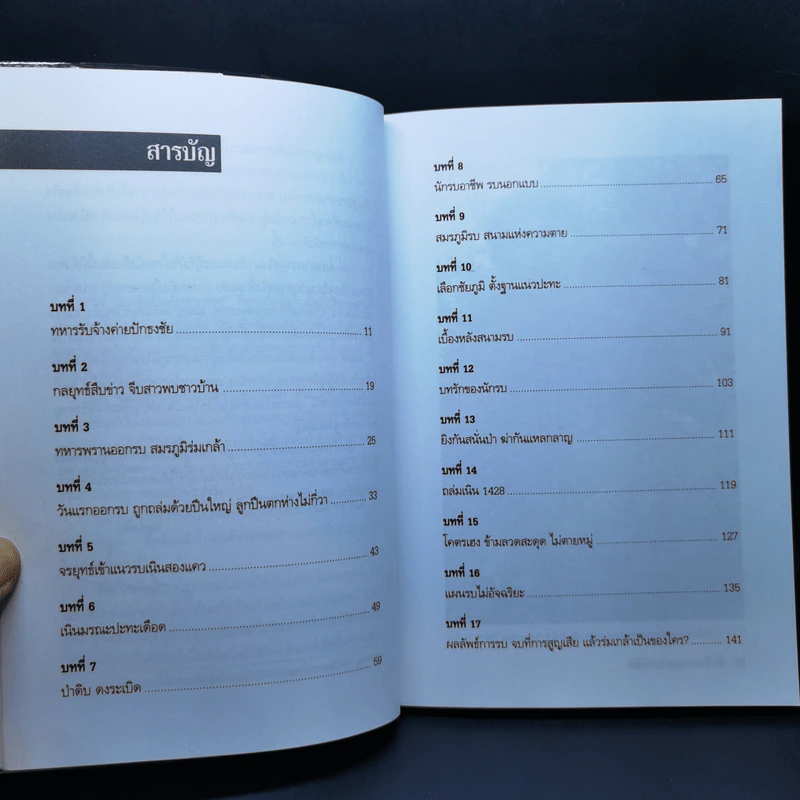 สารบัญ
บทที่ 1
ทหารรับจ้างค่ายปักธงชัย 11
บทที่ 2
กลยุทธ์สืบข่าว จีบสาวพบชาวบ้าน 19
บทที่ 3
ทหารพรานออกรบ สมรภูมิร่มเกล้า 25
บทที่ 4
วันแรกออกรบ ถูกถล่มด้วยปืนใหญ่ ลูกปืนตกห่างไม่กี่วา 33
บทที่ 5
จรยุทธ์เข้าแนวรบเนินสองแคว 43
บทที่ 6
เนินมรณะปะทะเดือด 49
บทที่ 7
ป่าดิบ ดงระเบิด 59
บทที่ 8
นักรบอาชีพ รบนอกแบบ 65
บทที่ 9
สมรภูมิรบ สนามแห่งความตาย 71
บทที่ 10
เลือกชัยภูมิ ตั้งฐานแนวปะทะ 81
บทที่ 11
เบื้องหลังสนามรบ 91
บทที่ 12
บทรักของนักรบ 103
บทที่ 13
ยิงกันสนั่นป่า ฆ่ากันแหลกลาญ 111
บทที่ 14
ถล่มเนิน 1428 119
บทที่ 15
โคตรเฮง ข้ามลวดสะดุด ไม่ตายหมู่ 127
บทที่ 16
แผนรบไม่อัจฉริยะ 135
บทที่ 17
ผลลัพธ์การรบ จบที่การสูญเสีย แล้วร่มเกล้าเป็นของใคร? 141